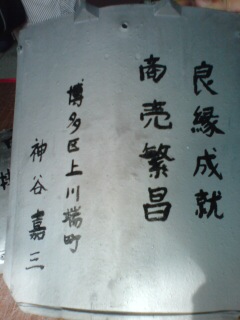 良縁成就
商売繁昌
博多区上川端町
神谷嘉三